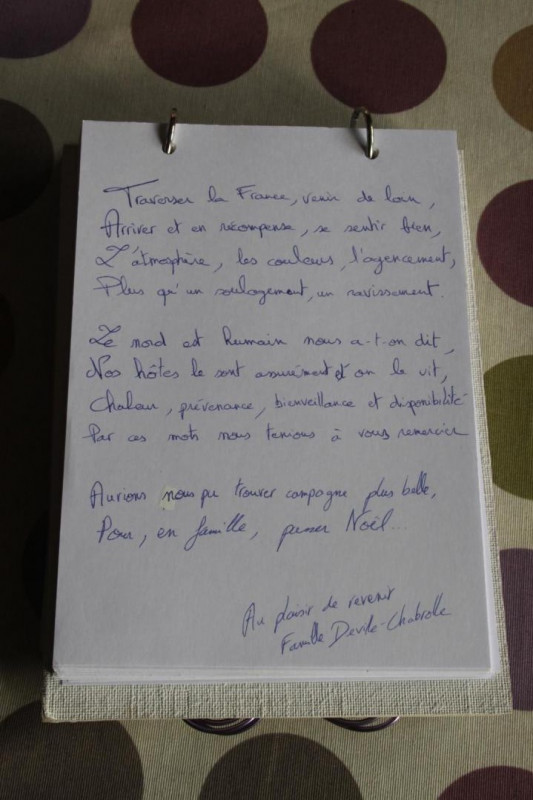 Traverser la France, venir de loin,
Arriver et en récompense, se sentir bien,
L'atmosphère, les couleurs, l'agencement,
Plus qu'un soulagement, un ravissement.
Le nord est humain nous a-t-on dit,
Nos hôtes le sont assurément et on le vit,
Chaleur, prévenance, bienveillance et disponibilité
Par ces mots nous tenions à vous remercier
Aurions nous pu trouver campagne plus belle,
Pour, en famille, passer Noël...
Au plaisir de revenir
Famille Deville-Chabrolle